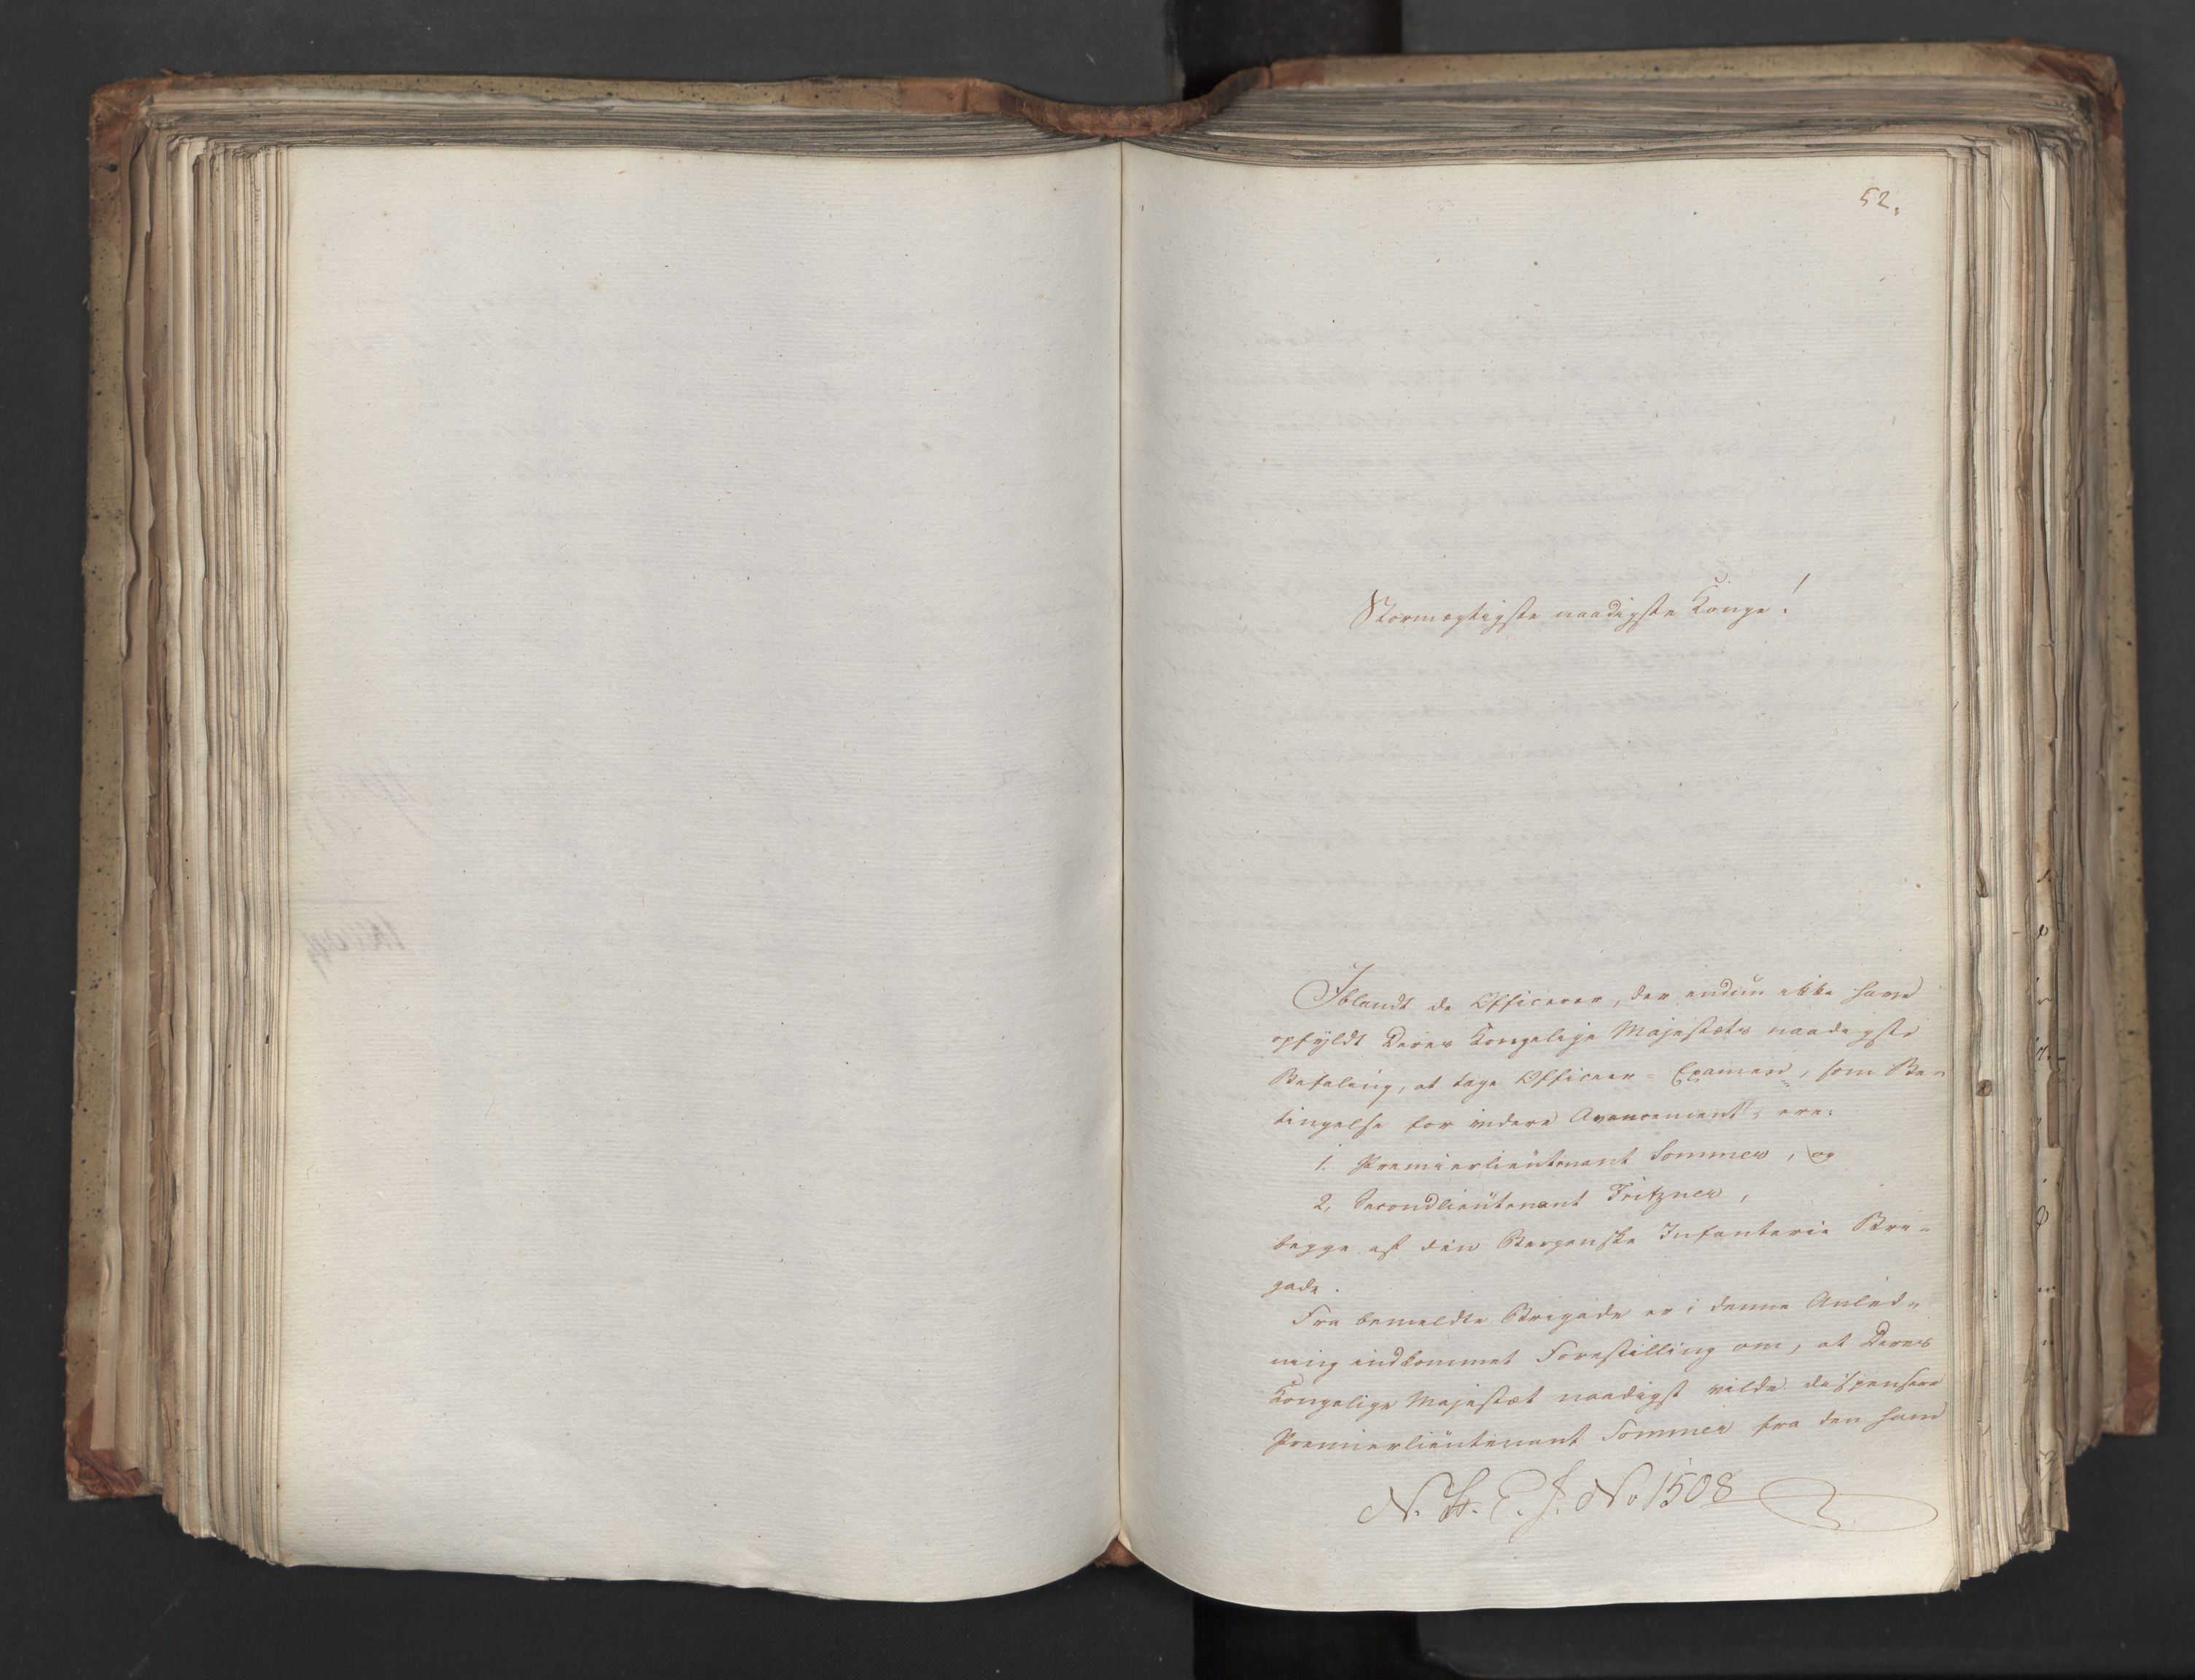 52.
Stormægtigste naadigste Konge!
Iblandt de Officerer, der endnu ikke have
opfyldt Deres Kongelige Majestæts naadigste
Befaling, at tage Officeer-Examen, som Be-
tingelse for videre Avancement, ere:
1. Premierlieutenant Sommer, og
2. Secondlieutenant Fritzner,
begge af den Bergenske Infanterie Bri-
gade.
Fra bemeldte Brigade er i denne Anled-
ning indkommet Forestilling om, at Deres
Kongelige Majestæt naadigst vilde dispensere
Premierlieutenant Sommer fra den ham
N. H. C. J. No 1508